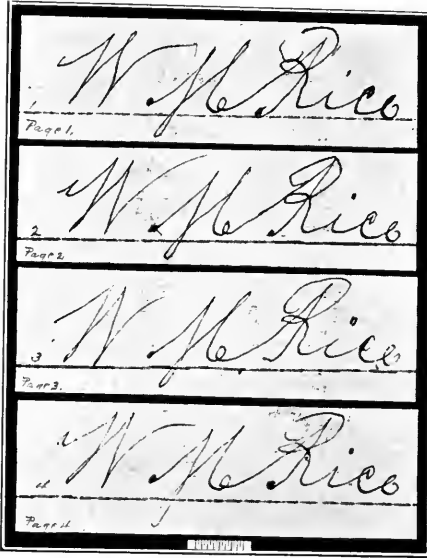 W. M. Rice
1
Page 1.
W. M. Rice
2
Page 2
W. M. Rice
3
Page 3.
W. M. Rice
4
Page 4.